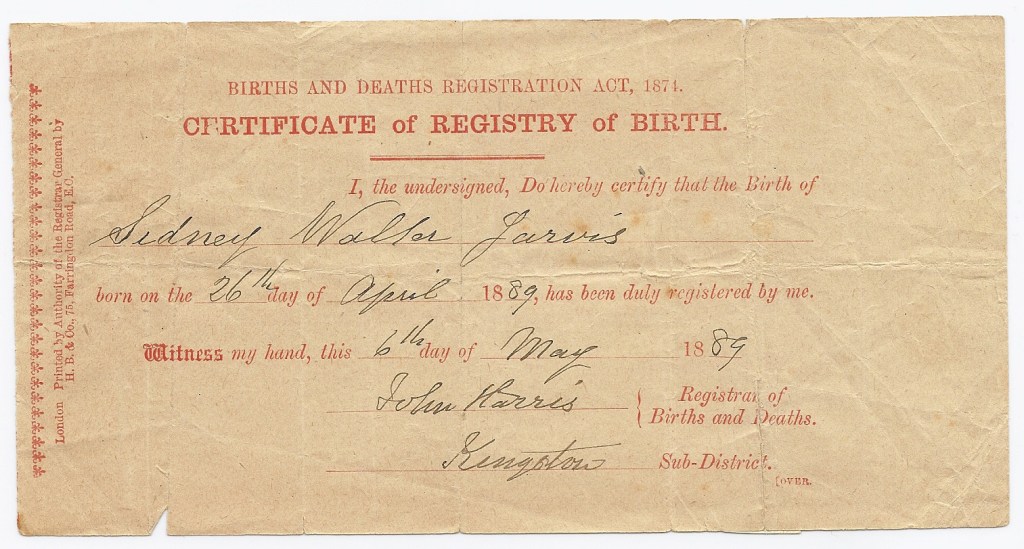 BIRTHS AND DEATHS REGISTRATION ACT, 1874.
CERTIFICATE of REGISTRY of BIRTH.
I, the undersigned, Do hereby certify that the Birth of
Sidney Walter Jarvis
born on the 26th day of April 1889, has been duly registered by me.
Witness my hand, this 6th day of May 1889
John Harris { Registrar of
Births and Deaths.
Kingston Sub-District.
[OVER.
London Printed by Authority of the Registrar General by
H. B. & Co., 75, Farringdon Road, E.C.